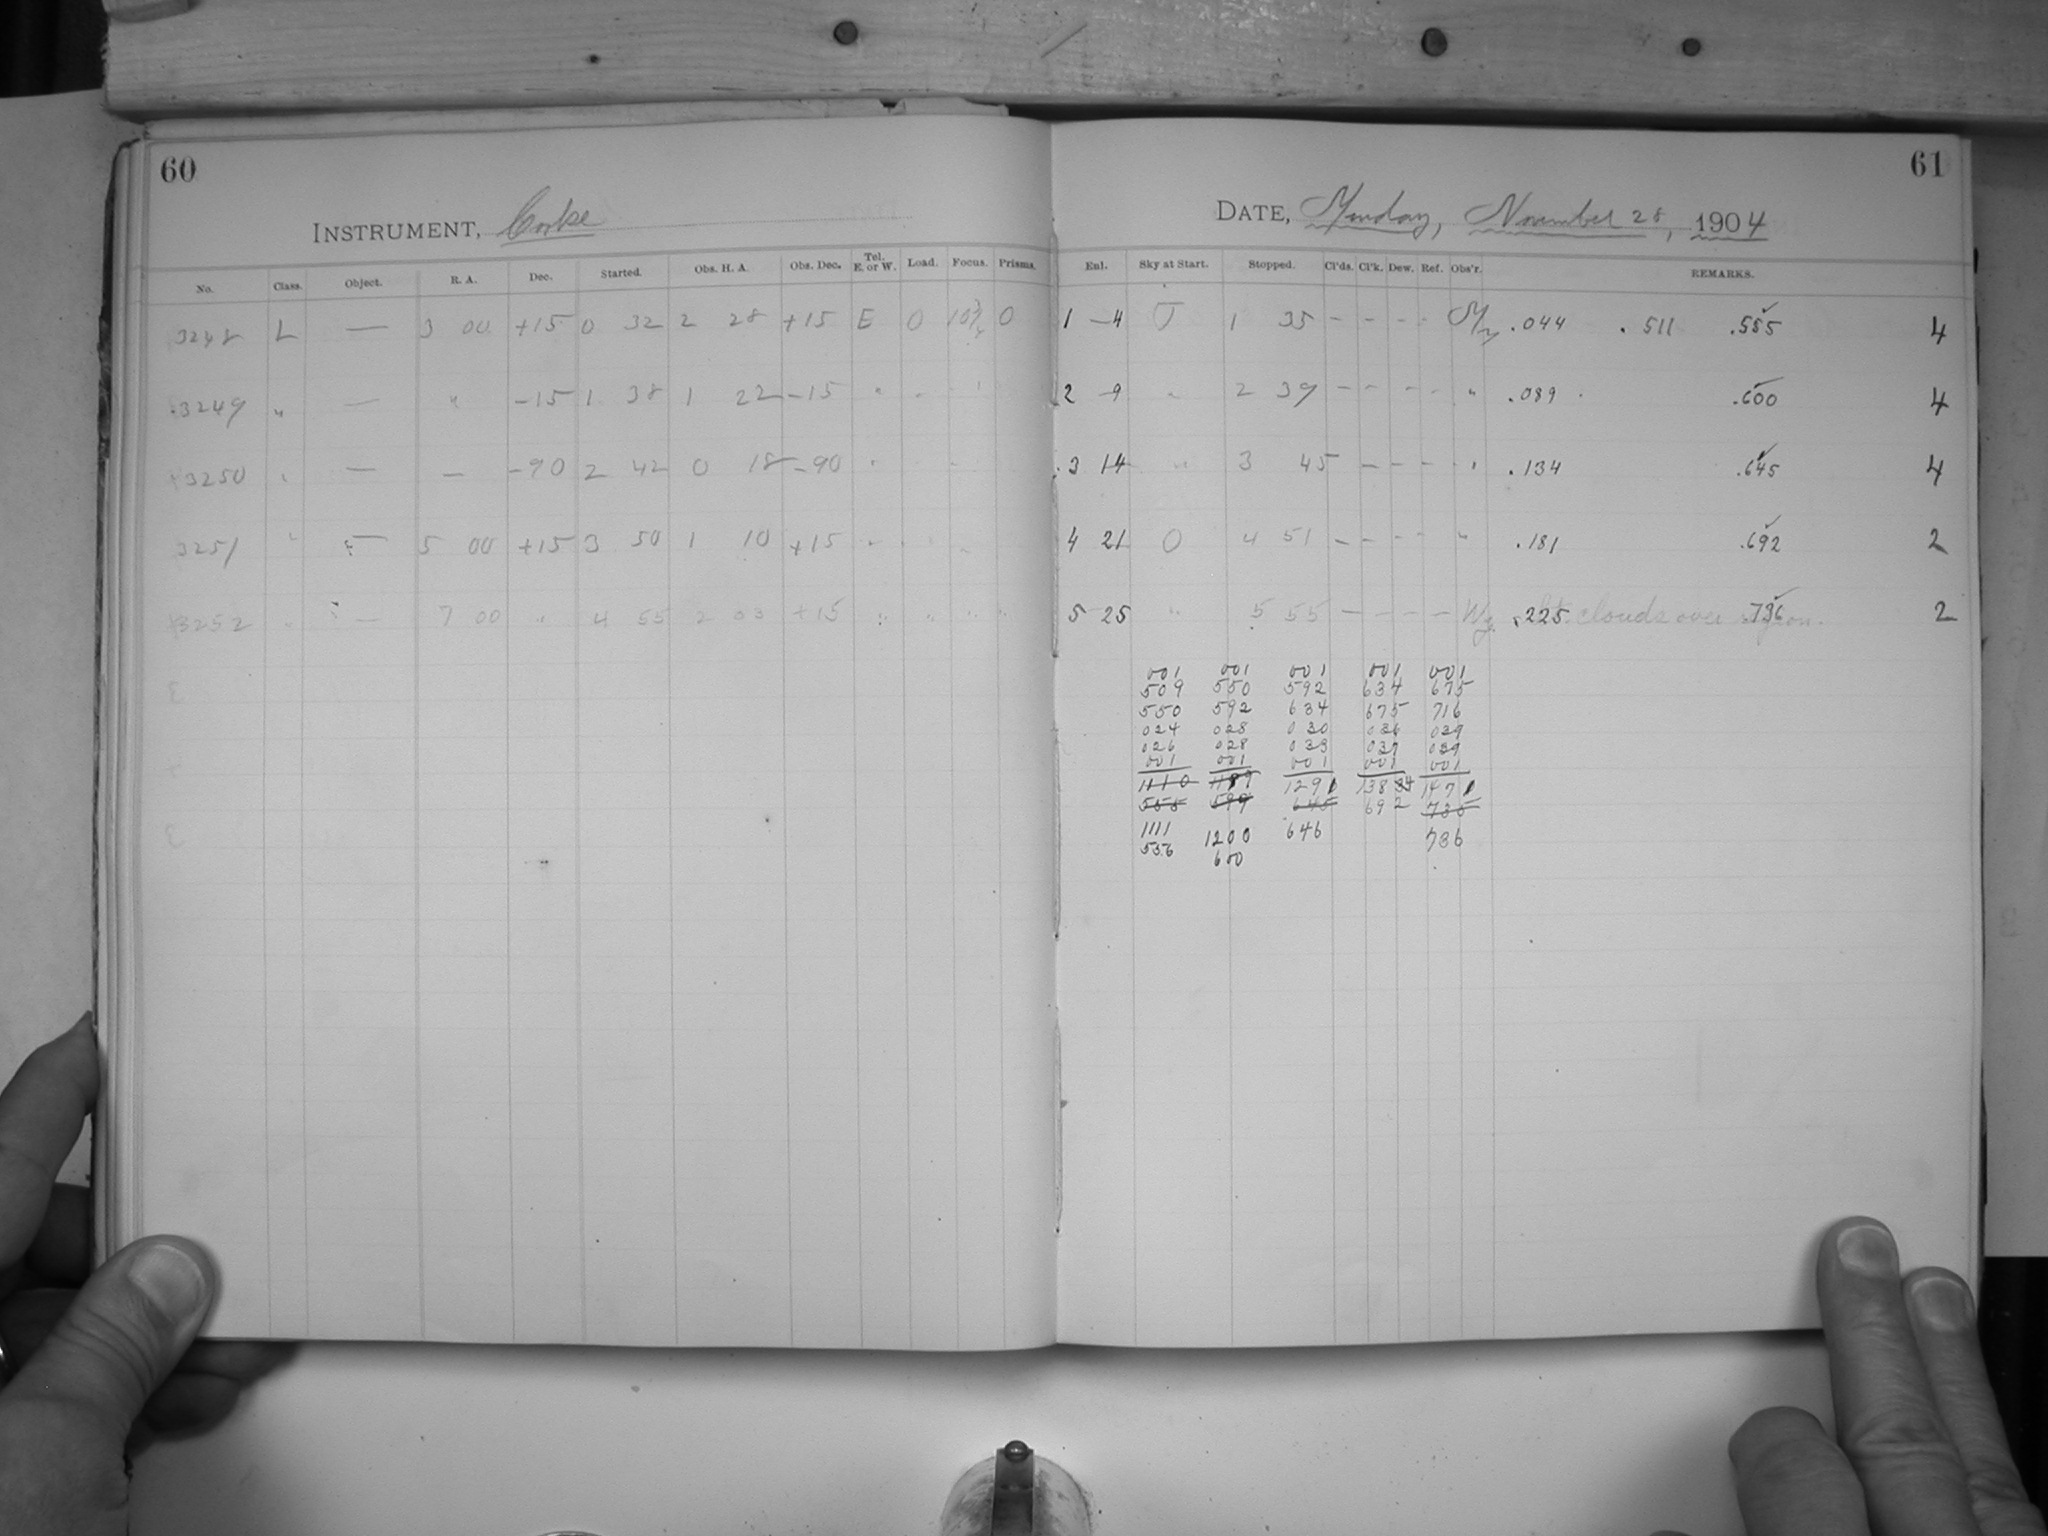 60
INSTRUMENT, Cooke
No. Class. Object. R. A. Dec. Started. Obs. H. A. Obs. Dec. Tel. E. or W. Load. Focus. Prisms.
3248 L — 3 00 +15 0 32 2 28 +15 E 0 10¾ 0
3249 " — " -15 1 38 1 22 -15 " "
3250 " — — -90 2 42 0 18 -90 "
3251 " — 5 00 +15 3 50 1 10 +15 " " "
3252 " — 7 00 " 4 55 2 03 +15 " " " "
61
DATE, Monday, November 28, 1904
Exl. Sky at Start. Stopped. Cl'ds. Cl'k. Dew. Ref. Obs'r. REMARKS.
1 -4 1 35 - - - - .044 .511 .555 4
2 -9 " 2 39 - - - - " .089 .600 4
3 14 " 3 45 - - - - " .134 .645 4
4 21 O 4 51 - - - - " .181 .692 2
5 25 " 5 55 - - - - .225 clouds over region. 736 2
001 001 001 001 001
509 550 592 634 675
550 592 634 675 716
024 028 030 036 039
026 028 033 037 039
001 001 001 001 001
1110 1199 1291 1384 1471
555 599 645 692 735
1111 1200 646 736
556 600